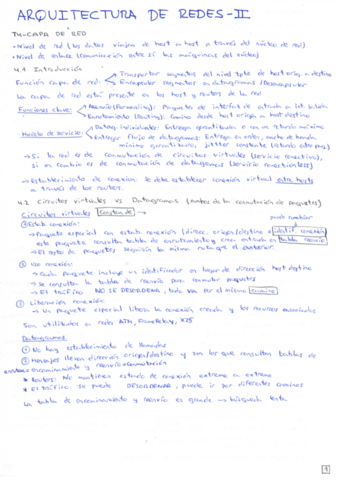 ARQUITECTURA DE REDES-II
T4-CAPA DE RED
•Nivel de red (los datos viajan de host a host a través del núcleo de red)
•Nivel de enlace (Comunicación entre sí las máquinas del núcleo)
4.1 Introducción
Función capa de red: → Transportar segmentos del nivel tpte de host orig a destino
→ Encapsular segmentos en datagramas/Desencapsular
La capa de red está presente en los host y routers de la red
Funciones clave: → Reenvío (Forwarding): Paquete de interfaz de entrada a int. salida
→ Enrutamiento (Routing): Camino desde host origen a host destino
Modelo de servicio: → Datag individuales: Entrega garantizada o con un retardo máximo
→ Entregar flujo de datagramas: Entrega en orden, ancho de banda
mínimo garantizado, jitter constante
→Si la red es de conmutación de circuitos virtuales (servicio conectivo),
si en cambio es de conmutación de datagramas (servicio connectionless)
→Establecimiento de conexión: Se debe establecer conexión virtual entre hosts
a través de los routers.
4.2 Circuitos virtuales vs Datagramas (ambos de la conmutación de paquetes)
Circuitos virtuales
puede cambiar
① Estab conexión:
→Paquete especial con estab. conexión (direcc. origen/destino e identif. conexión)
este paquete consulta tablas de enrutamiento y crea entrada en tabla reenvío
→El resto de paquetes seguirán la misma ruta que el anterior
② Uso conexión:
→Cada paquete incluye un identificador en lugar de dirección host destino
→Se consulta la tabla de reenvío para conmutar paquetes
→El tráfico NO SE DESORDENA, todo va por el mismo camino
③ Liberación conexión:
→Un paquete especial libera la conexión creada y los recursos reservados
Son utilizadas en redes ATM, FrameRelay, X25
Datagramas:
① No hay establecimiento de llamada
② Mensajes llevan dirección origen/destino y con los que consultan tablas de
encaminamiento y reenvío/conmutación
* Routers: No mantienen estado de conexión extremo a extremo
* El tráfico se puede DESORDENAR, puede ir por diferentes caminos
La tabla de encaminamiento y reenvío es grande → búsqueda lenta
1